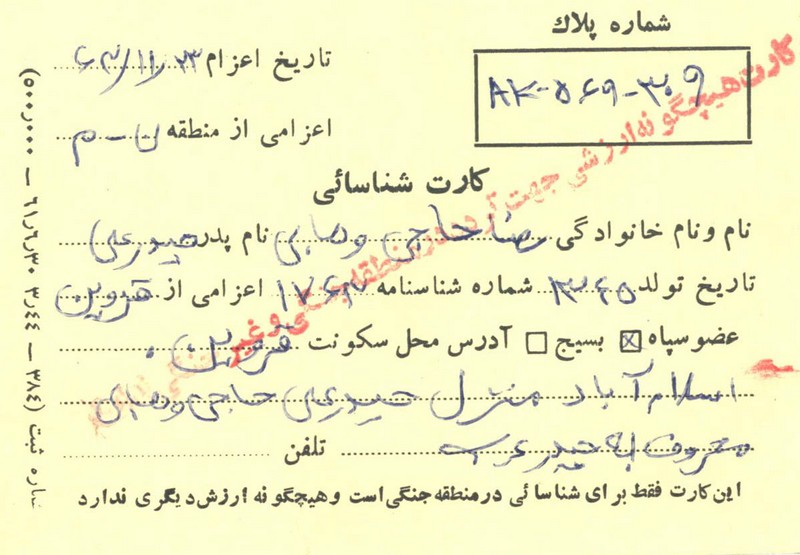 شماره پلاك
AK-569-309
تاریخ اعزام ۶۳/۱۱/۲۳
اعزامی از منطقه ن - م
کارت شناسائی
نام و نام خانوادگی رضا حاجی وهابی نام پدر حیدرعلی
تاریخ تولد ۱۳۴۵ شماره شناسنامه ۱۷۶۲ اعزامی از قزوین
عضو سپاه ☒ بسیج ☐ آدرس محل سکونت قزوین .
اسلام آباد منزل حیدرعلی حاجی وهابی
معروف به حیدر عرب تلفن
این کارت فقط برای شناسائی در منطقه جنگی است و هیچگونه ارزش دیگری ندارد
کارت هیچگونه ارزشی جهت تردد در منطقه جنگی و غیر
شماره ثبت (۳۸۴ — ۳٫۴۴ ۶۱٫۶٫۳۰ — ۵۰۰٫۰۰۰)